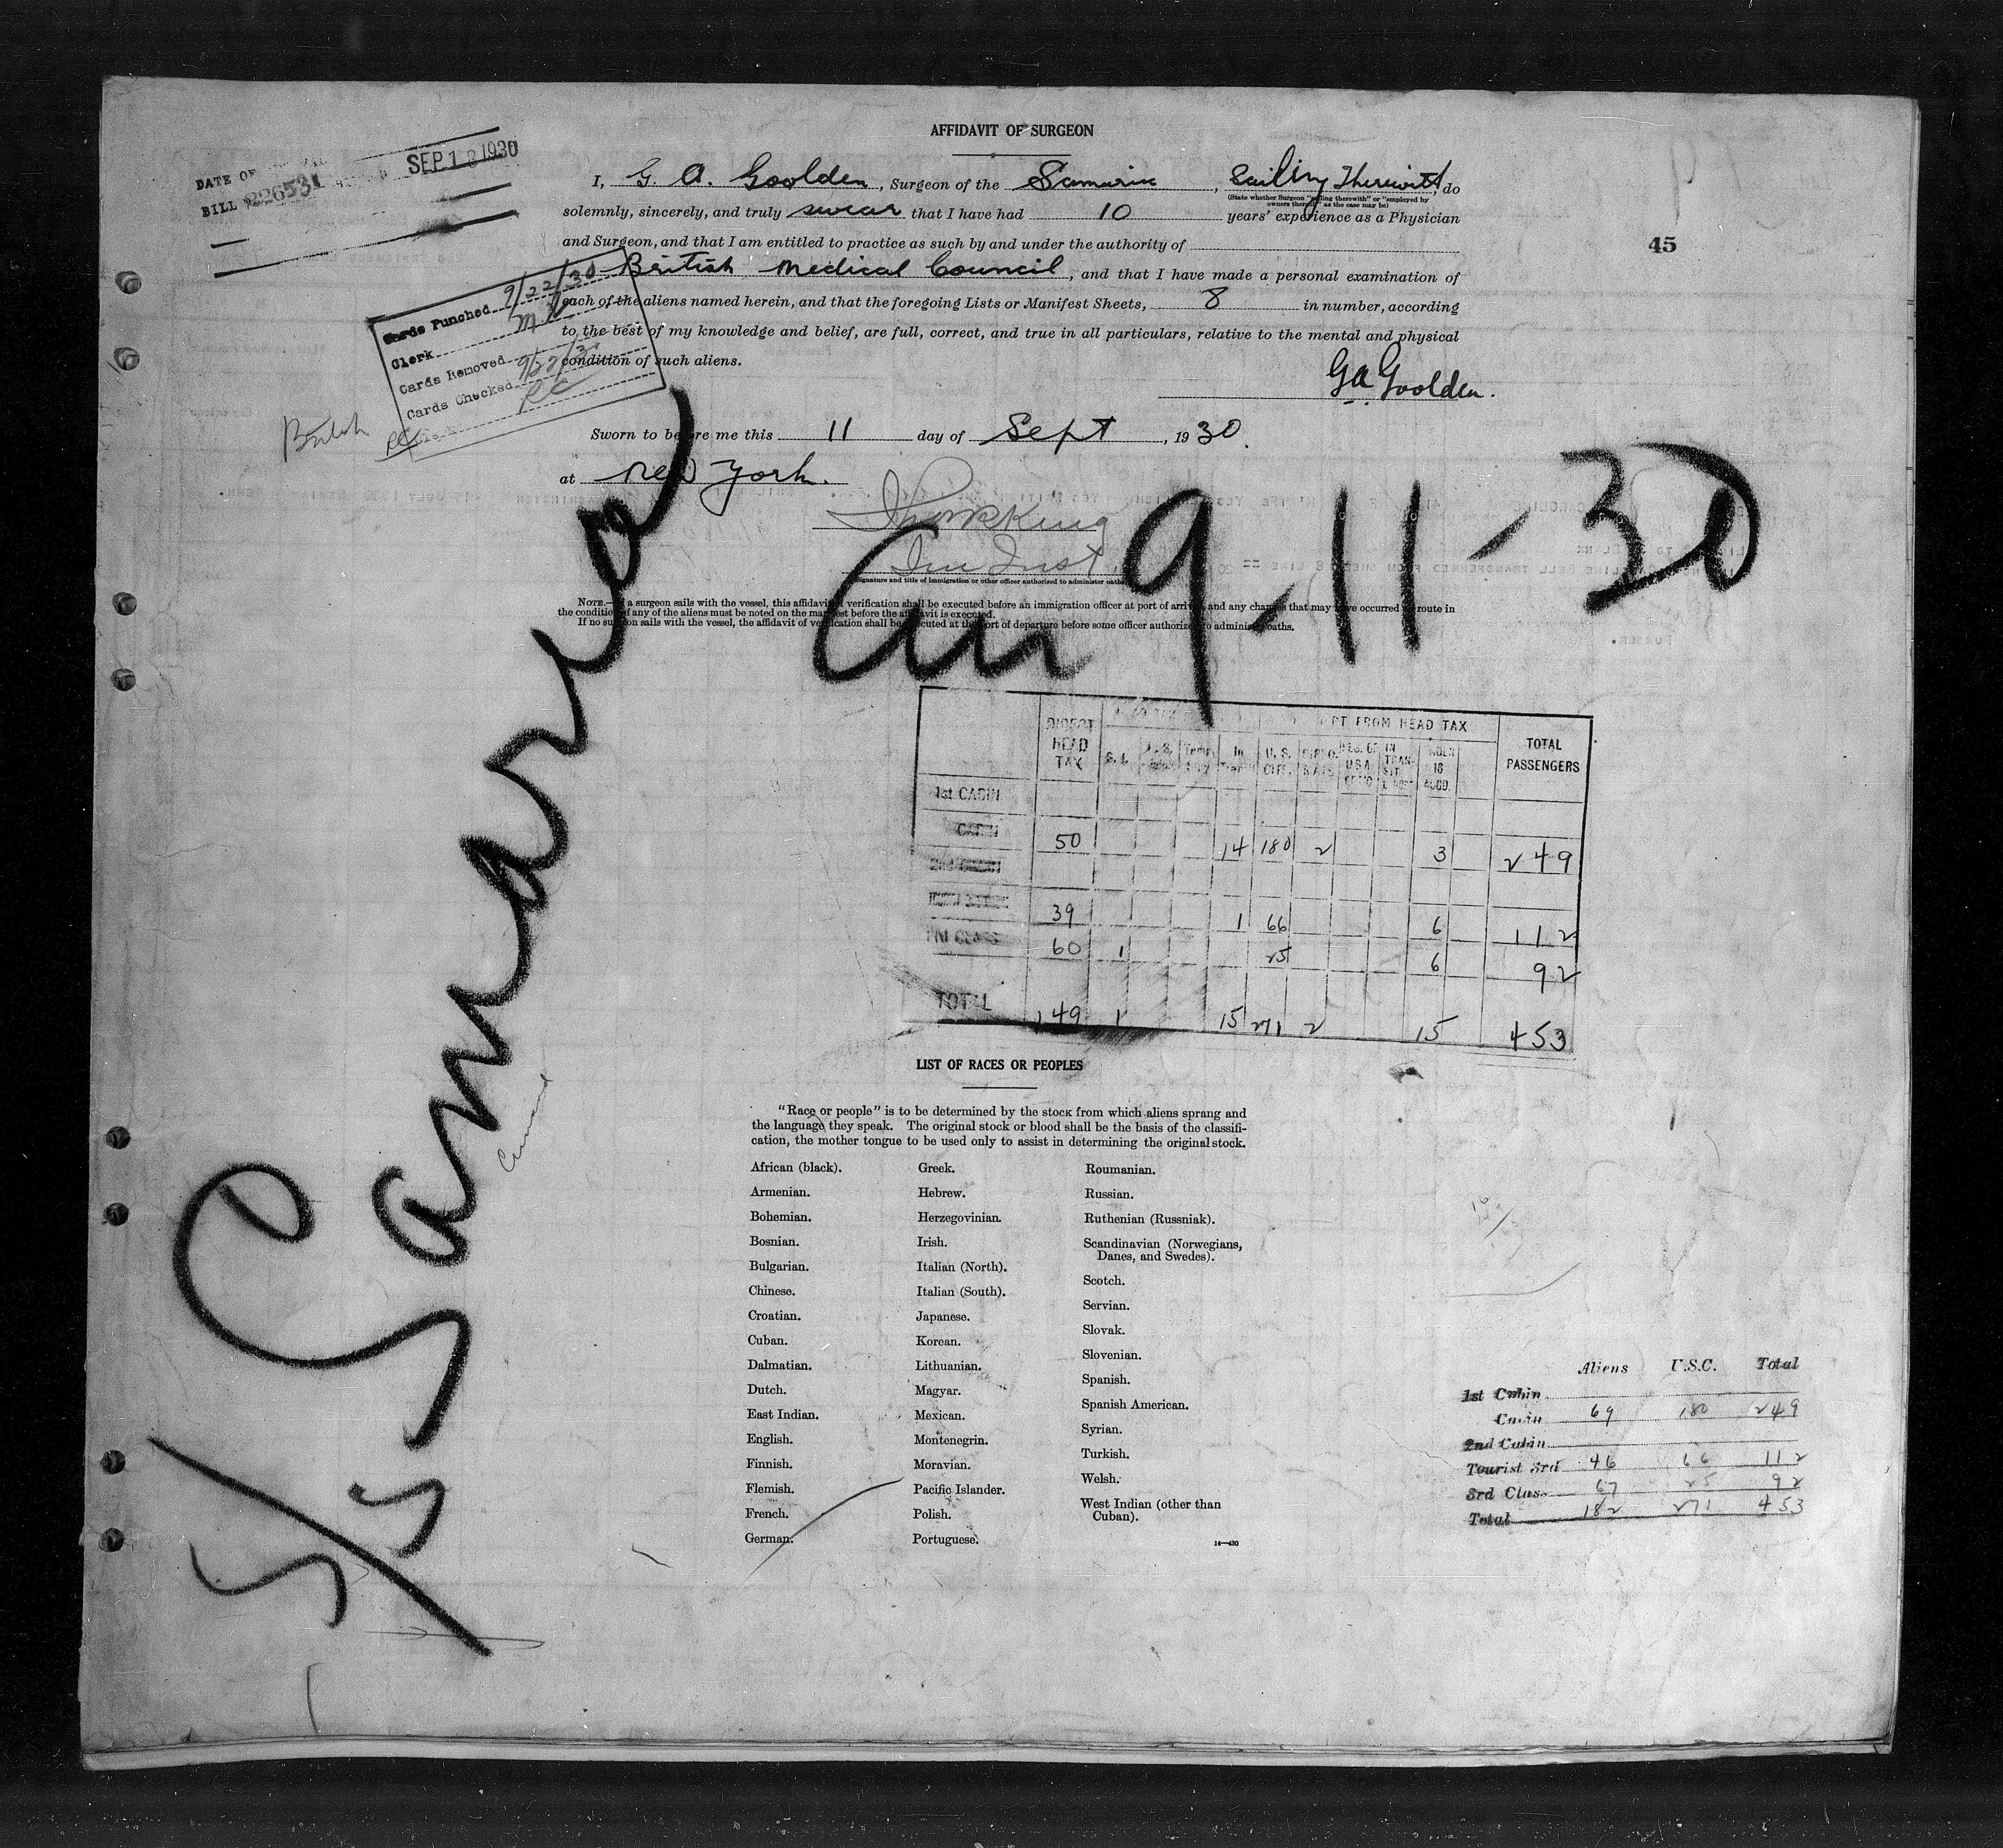 AFFIDAVIT OF SURGEON
DATE OF
SEP 1 1930
BILL 226531
I, G. A. Goolden, Surgeon of the Samaria, Sailing Therewith, do
(State whether Surgeon "sailing therewith" or "employed by
owners thereof," as the case may be)
solemnly, sincerely, and truly swear that I have had 10 years' experience as a Physician
and Surgeon, and that I am entitled to practice as such by and under the authority of
British Medical Council, and that I have made a personal examination of
each of the aliens named herein, and that the foregoing Lists or Manifest Sheets, 8 in number, according
to the best of my knowledge and belief, are full, correct, and true in all particulars, relative to the mental and physical
condition of such aliens.
45
Cards Punched 9/22/30
Clerk
Cards Removed
Cards Checked RC
British
GA Goolden.
Sworn to before me this 11 day of Sept, 1930.
at New York.
King
Imm Inst
Signature and title of immigration or other officer authorized to administer oaths
NOTE.—If a surgeon sails with the vessel, this affidavit of verification shall be executed before an immigration officer at port of arrival, and any changes that may have occurred en route in
the condition of any of the aliens must be noted on the manifest before the affidavit is executed.
If no surgeon sails with the vessel, the affidavit of verification shall be executed at the port of departure before some officer authorized to administer oaths.
Arr 9-11-30
S/S Samaria
Cunard
DIRECT HEAD TAX
EXEMPT FROM HEAD TAX
TOTAL PASSENGERS
1st CABIN
CABIN 50 14 180 2 3 249
2nd CABIN
39 1 66 6 112
60 1 25 6 92
TOTAL 149 1 15 271 2 15 453
LIST OF RACES OR PEOPLES
"Race or people" is to be determined by the stock from which aliens sprang and
the language they speak. The original stock or blood shall be the basis of the classifi-
cation, the mother tongue to be used only to assist in determining the original stock.
African (black).
Armenian.
Bohemian.
Bosnian.
Bulgarian.
Chinese.
Croatian.
Cuban.
Dalmatian.
Dutch.
East Indian.
English.
Finnish.
Flemish.
French.
German.
Greek.
Hebrew.
Herzegovinian.
Irish.
Italian (North).
Italian (South).
Japanese.
Korean.
Lithuanian.
Magyar.
Mexican.
Montenegrin.
Moravian.
Pacific Islander.
Polish.
Portuguese.
Roumanian.
Russian.
Ruthenian (Russniak).
Scandinavian (Norwegians,
Danes, and Swedes).
Scotch.
Servian.
Slovak.
Slovenian.
Spanish.
Spanish American.
Syrian.
Turkish.
Welsh.
West Indian (other than
Cuban).
14—430
Aliens U.S.C. Total
1st Cabin
Cabin 69 180 249
2nd Cabin
Tourist 3rd 46 66 112
3rd Class 67 25 92
Total 182 271 453